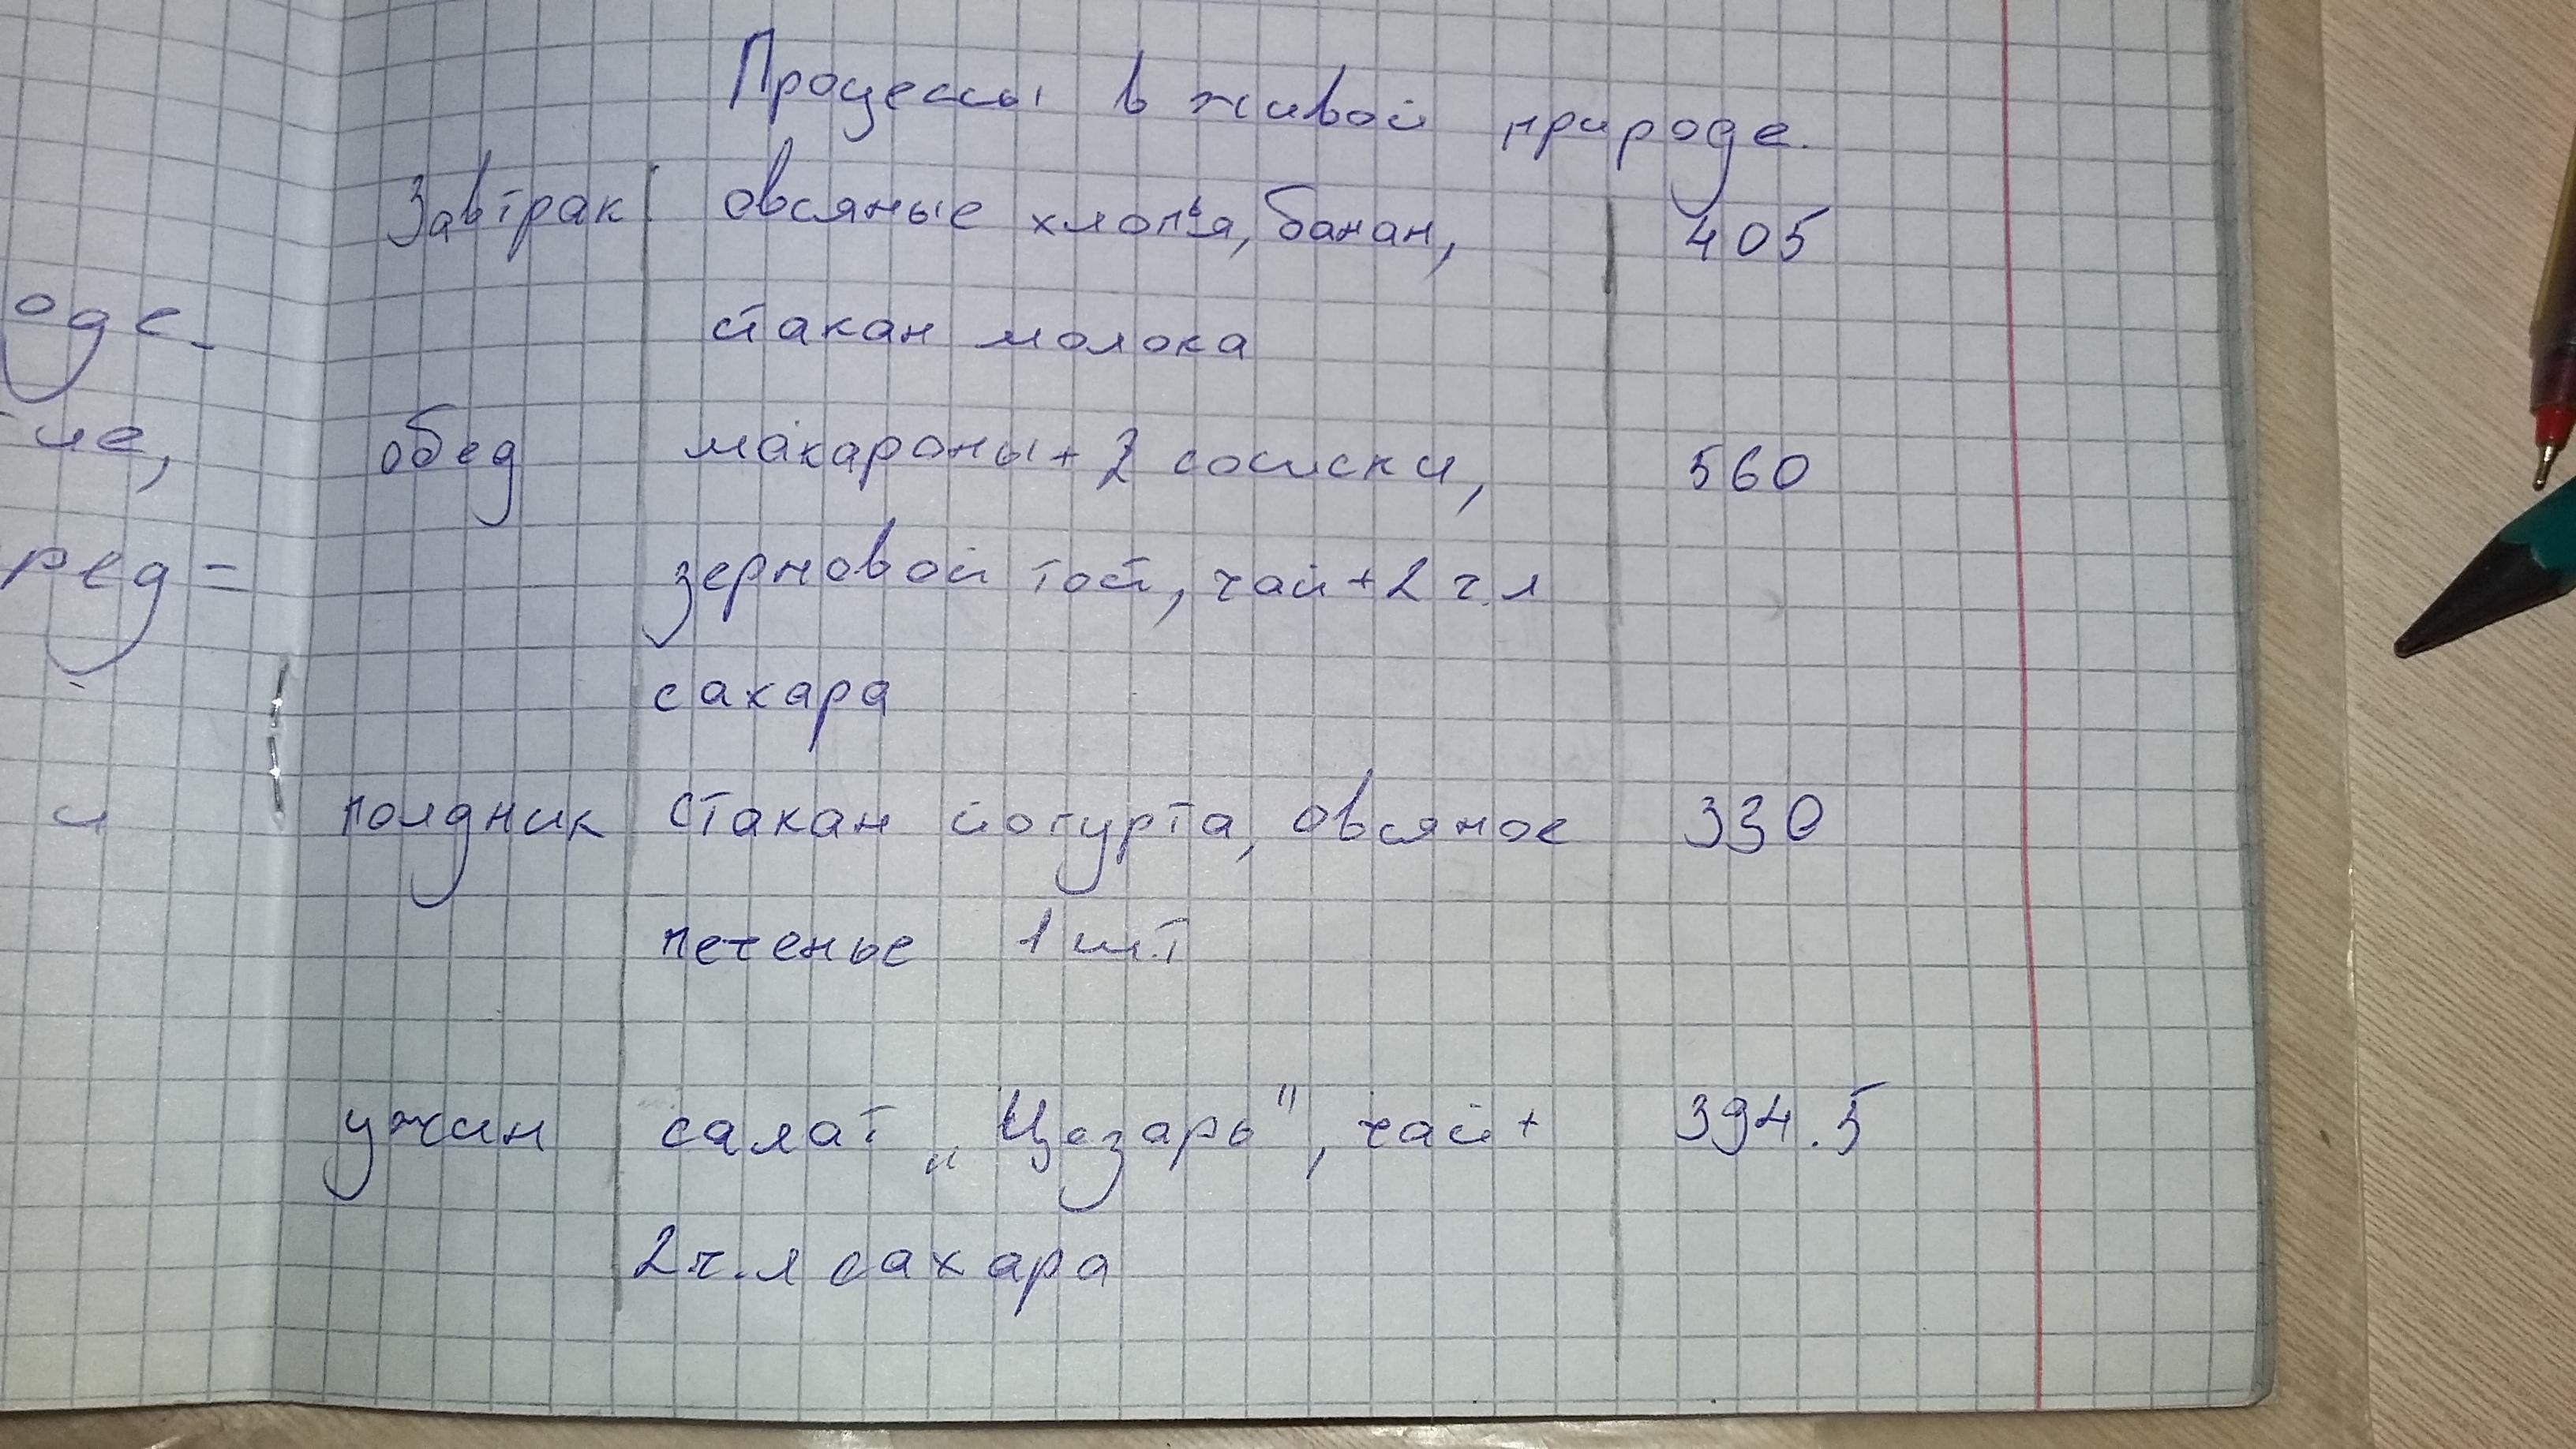 Процессы в живой природе.
Завтрак: овсяные хлопья, банан, 405
стакан молока
обед макароны + 2 сосиски, 560
зерновой тост, чай + 2 ч.л
сахара
полдник стакан йогурта, овсяное 330
печенье 1 шт
ужин салат „Цезарь", чай + 394.5
2 ч.л сахара
оде.
ред =
и